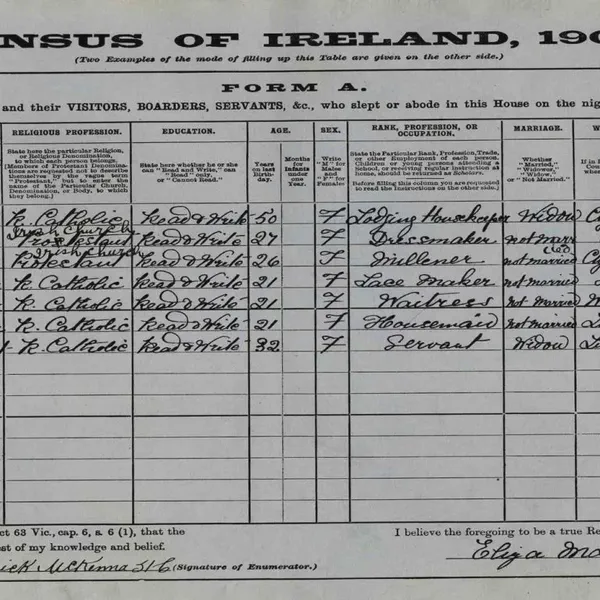 NSUS OF IRELAND, 190
(Two Examples of the mode of filling up this Table are given on the other side.)
FORM A.
and their VISITORS, BOARDERS, SERVANTS, &c., who slept or abode in this House on the nig
RELIGIOUS PROFESSION. EDUCATION. AGE. SEX. RANK, PROFESSION, OR OCCUPATION. MARRIAGE.
State here the particular Religion, or Religious Denomination, to which each person belongs.
(Members of Protestant Denominations are requested not to describe themselves by the vague term "Protestant," but to enter the name of the Particular Church, Denomination, or Body, to which they belong.)
State here whether he or she can "Read and Write," can "Read" only, or "Cannot Read."
Years on last Birthday.
Months for Infants under one Year.
Write "M" for Males and "F" for Females.
State the Particular Rank, Profession, Trade, or other Employment of each person. Children or young persons attending a School, or receiving regular instruction at home, should be returned as Scholars.
Before filling this column you are requested to read the Instructions on the other side.
Whether "Married," "Widower," "Widow," or "Not Married."
R. Catholic Read & Write 50 F Lodging Housekeeper Widow
Irish Church
Protestant Read & Write 27 F Dressmaker not married
Irish Church
Protestant Read & Write 26 F Millener not married
R Catholic Read & Write 21 F Lace Maker not married
R. Catholic Read & Write 21 F Waitress not Married
R. Catholic Read & Write 21 F Housemaid not married
R. Catholic Read & Write 32 F Servant Widow
ct 63 Vic., cap. 6, s. 6 (1), that the
est of my knowledge and belief.
ick McKenna (Signature of Enumerator.)
I believe the foregoing to be a true Re
Eliza